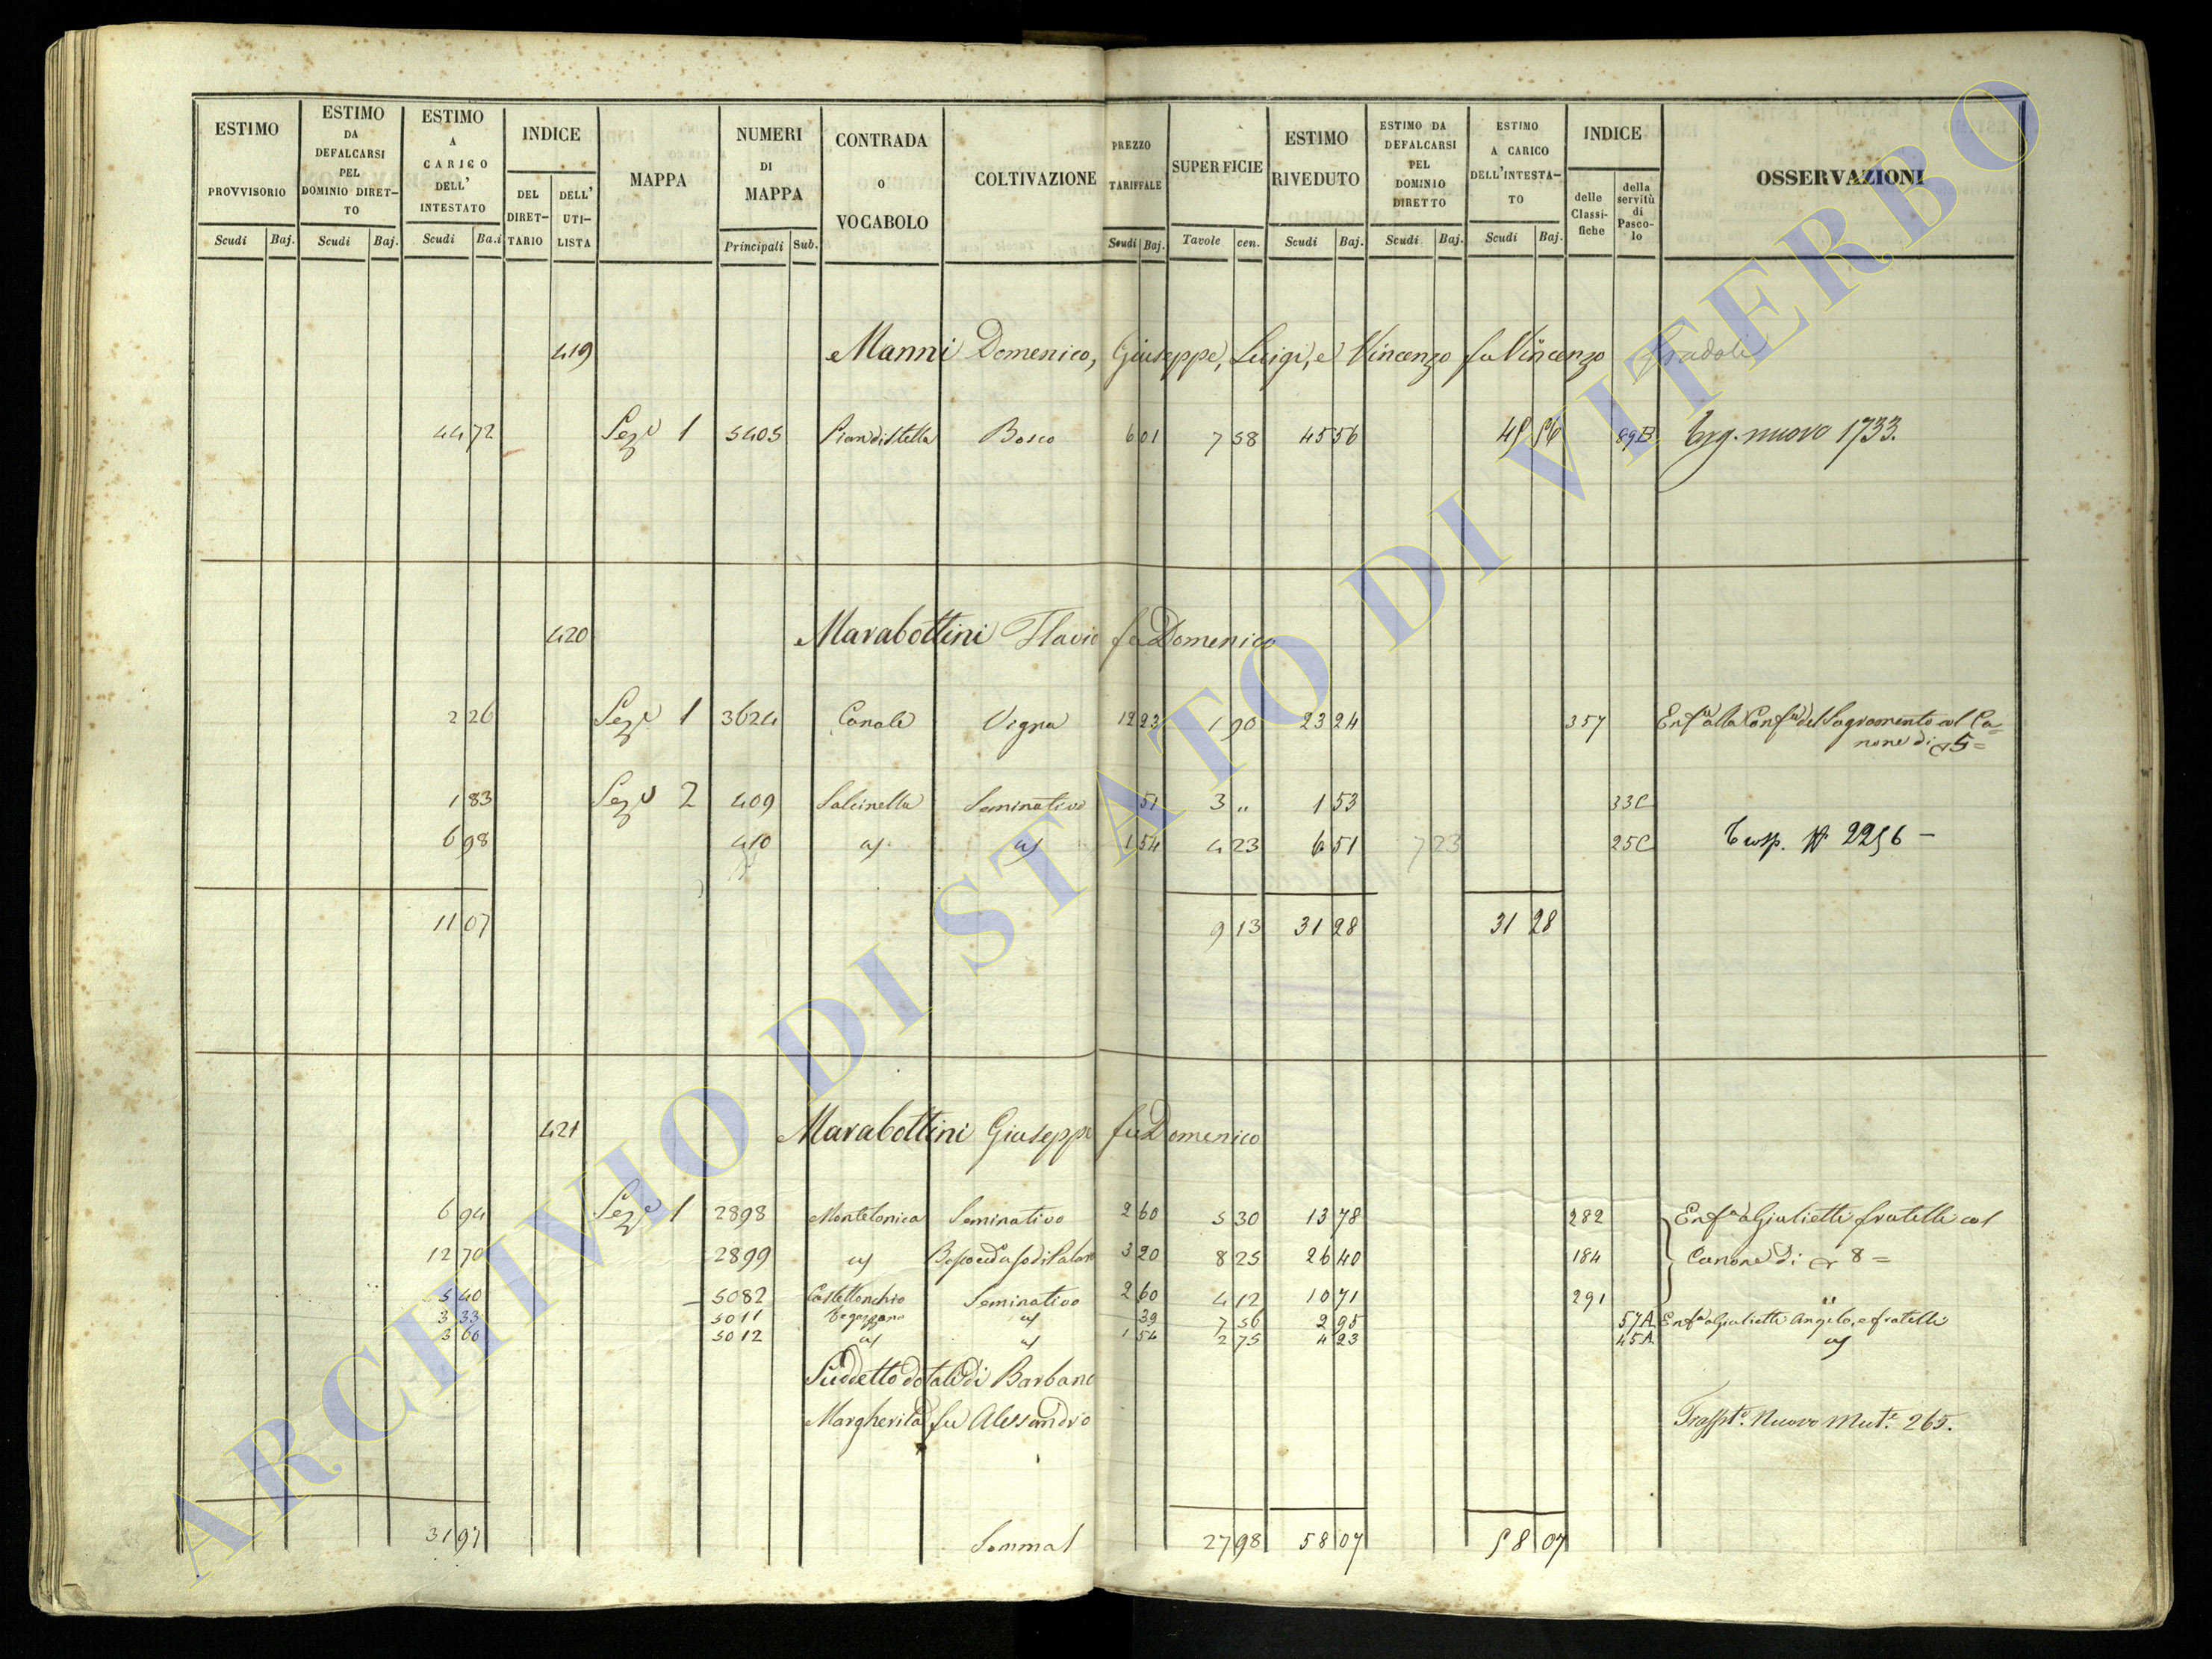 ESTIMO PROVVISORIO
ESTIMO DA DEFALCARSI PEL DOMINIO DIRET-TO
ESTIMO A CARICO DELL' INTESTATO
INDICE
DEL DIRET-TARIO
DELL' UTI-LISTA
MAPPA
NUMERI DI MAPPA
CONTRADA O VOCABOLO
COLTIVAZIONE
PREZZO TARIFFALE
SUPERFICIE
ESTIMO RIVEDUTO
ESTIMO DA DEFALCARSI PEL DOMINIO DIRETTO
ESTIMO A CARICO DELL'INTESTA-TO
INDICE
delle Classi-fiche
della servitù di Pasco-lo
OSSERVAZIONI
Scudi Baj. Scudi Baj. Scudi Ba.i Principali Sub. Scudi Baj. Tavole cen. Scudi Baj. Scudi Baj. Scudi Baj.
419 Manni Domenico, Giuseppe, Luigi, e Vincenzo fu Vincenzo
44 72 Seze 1 5405 Piandistella Bosco 6 01 7 58 45 56 45 56 89B nuovo 1733.
420 Marabottini Flavio fu Domenico
2 26 Seze 1 3624 Canale Vigna 12 23 1 90 23 24 357 Enfa alla Confa del Sagramento col Ca=
none di 5=
1 83 Seze 2 409 Salcinella Seminativo 51 3 " 1 53 33C
6 98 410 1 54 4 23 6 51 7 23 25C 2256 –
11 07 9 13 31 28 31 28
421 Marabottini Giuseppe fu Domenico
6 94 Seze 1 2898 Montelonica Seminativo 2 60 5 30 13 78 282 Enfa a Giulietti fratelli col
12 70 2899 3 20 8 25 26 40 184 Canone di 8=
5 40 5082 Castellonchio Seminativo 2 60 4 12 10 71 291 "
3 33 5011 39 7 56 2 95 57A Enfa a Giulietti Angelo, e fratelli
3 60 5012 1 54 2 75 4 23 45A
Suddetto dotali di Barbano
Margherita fu Alessandro Nuovo Mute. 265.
31 97 Somma 27 98 58 07 58 07
ARCHIVIO DI STATO DI VITERBO